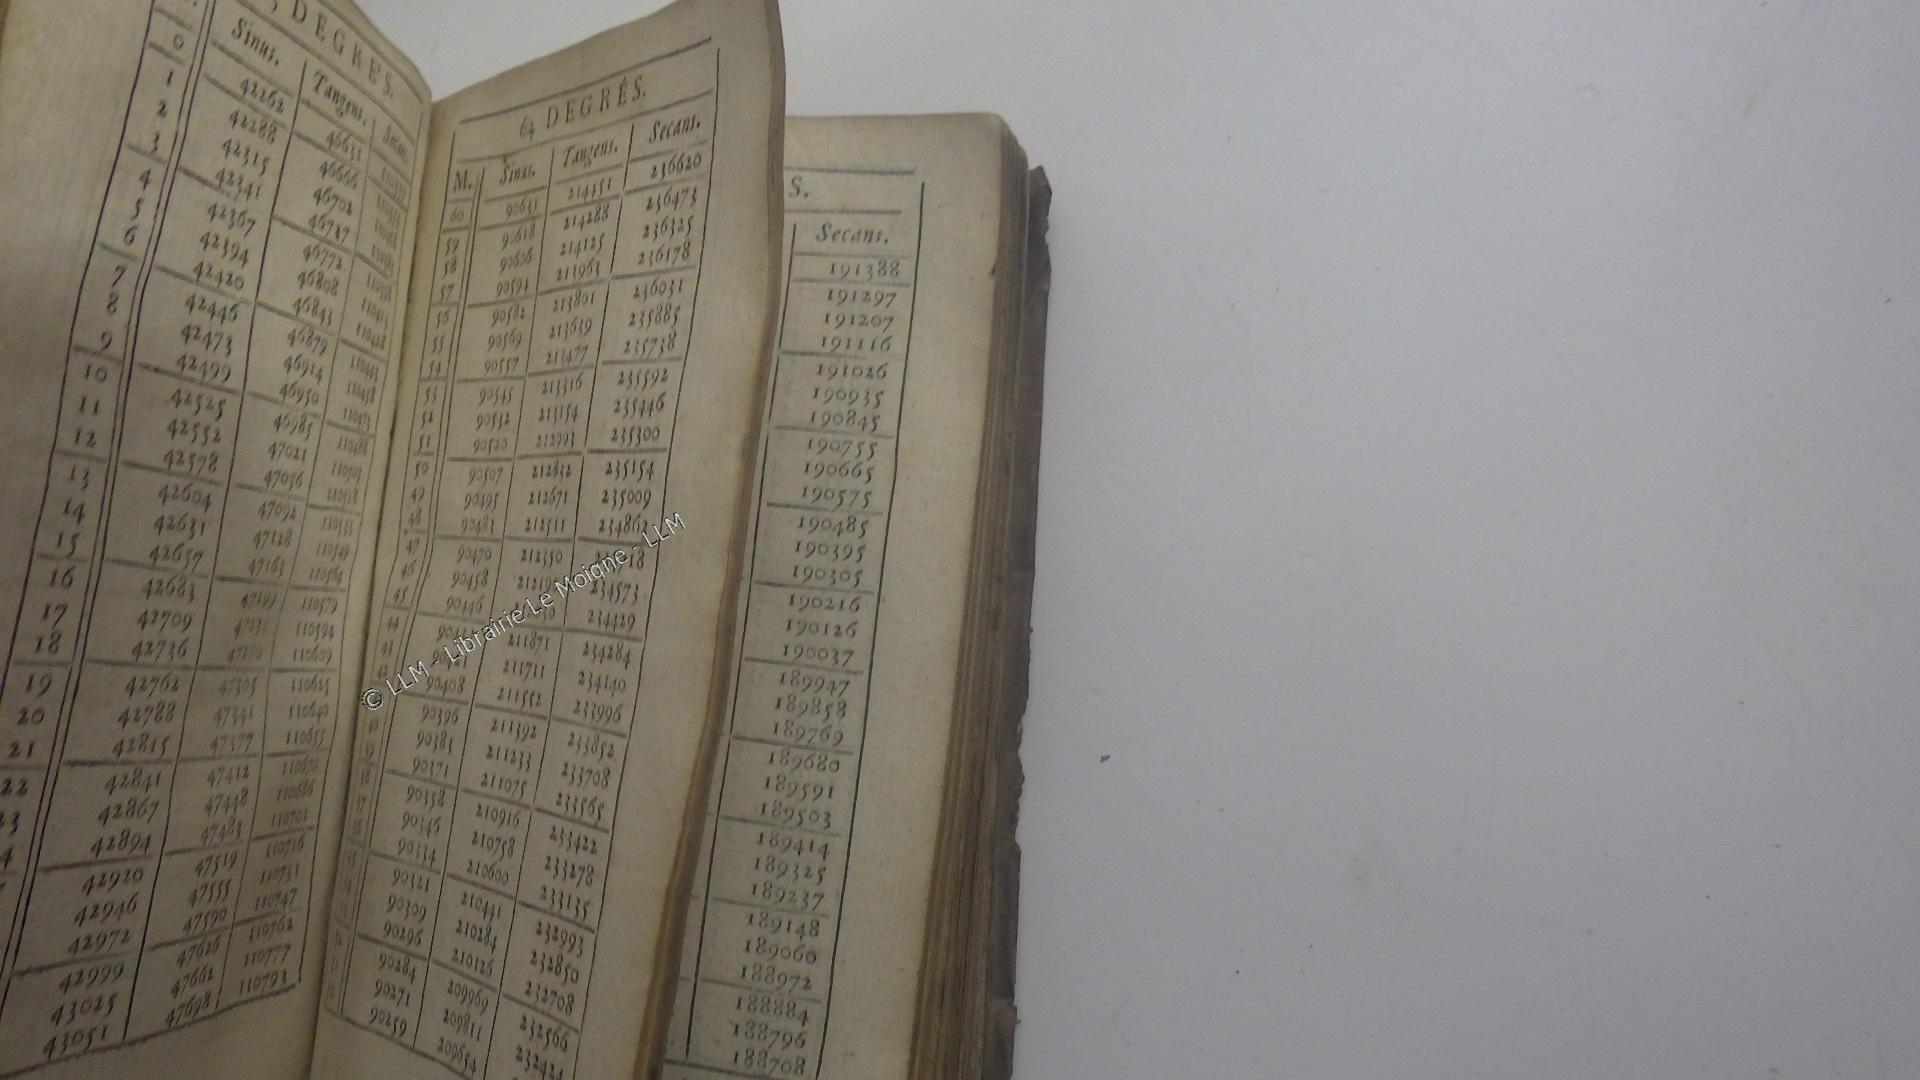 DEGRÉS.
Sinus. Tangens. Secans.
0 42262 46631
1 42288 46666
2 42315 46702
3 42341 46737
4 42367 46772
5 42394 46808
6 42420 46843
7 42446 46879
8 42473 46914
9 42499 46950
10 42525 46985
11 42552 47021
12 42578 47056
13 42604 47092
14 42631 47128
15 42657 47163
16 42683 47199 110579
17 42709 110594
18 42736 47270 110609
19 42762 47305 110625
20 42788 47341 110640
21 42815 47377 110655
22 42841 47412 110670
42867 47448 110686
42894 47483 110701
42920 47519 110716
42946 47555 110731
42972 47590 110747
42999 47626 110762
43025 47662 110777
43051 47698 110793
64 DEGRÉS.
M. Sinus. Tangens. Secans.
60 90631 214451 236620
59 90618 214288 236473
58 90606 214125 236325
57 90594 213963 236178
56 90582 213801 236031
55 90569 213639 235885
54 90557 213477 235738
53 90545 213316 235592
52 90532 213154 235446
51 90520 212993 235300
50 90507 212832 235154
49 90495 212671 235009
48 90483 212511 234863
47 90470 212350
46 90458 234573
45 90446 234429
44 211871 234284
43 211711 234140
90408 211552 233996
40 90396 211392 233852
39 90383 211233 233708
38 90371 211075 233565
37 90358 210916 233422
90346 210758 233278
90334 210600 233135
90321 210441 232993
90309 210284 232850
90296 210126 232708
90284 209969 232566
90271 209811 232424
90259 209654
S.
Secans.
191388
191297
191207
191116
191026
190935
190845
190755
190665
190575
190485
190395
190305
190216
190126
190037
189947
189858
189769
189680
189591
189503
189414
189325
189237
189148
189060
188972
188884
188796
188708
© LLM - Librairie Le Moigne - LLM